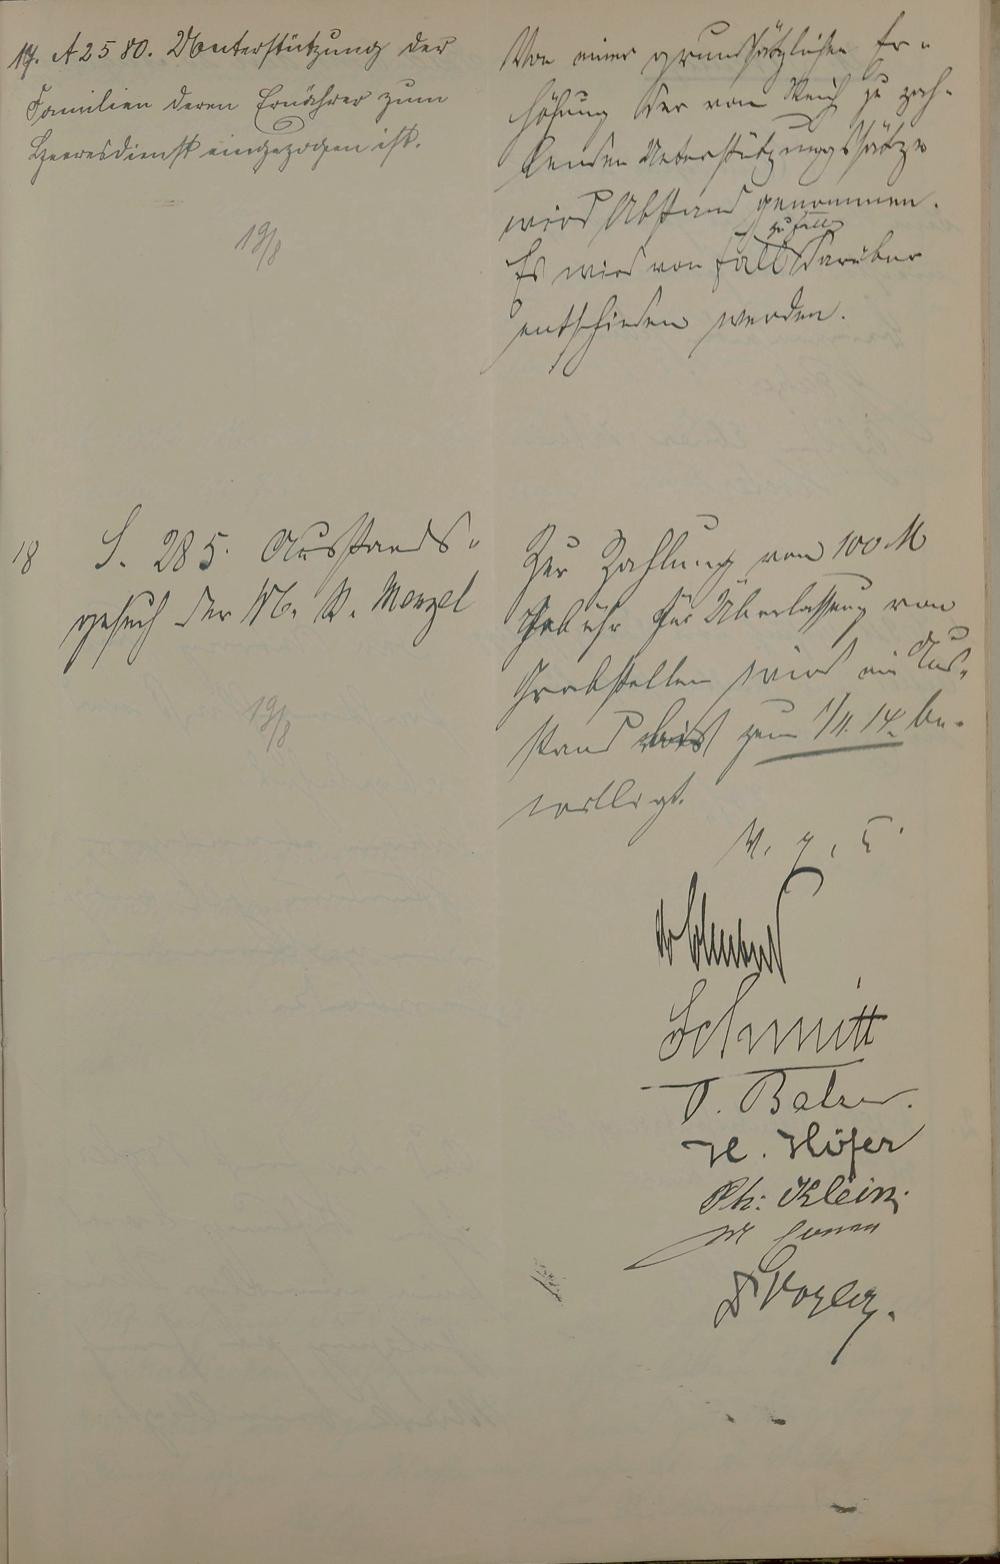 17. A 2580. Unterstützung der
Familien deren Ernährer zum
Heeresdienst eingezogen ist.
19/8
Von einer grundsätzlichen Er-
höhung der vom Reich zu zah-
lenden Unterstützungssätze
wird Abstand genommen.
zu Fall
Es wird von Fall darüber
entschieden werden.
18 S. 285. Ausstands-
gesuch der W. Menzel
19/8
Zur Zahlung von 100 M
Gebühr für Überlassung von
Grabstellen wird ein Aus-
stand bis zum 1/11. 14. be-
willigt.
V. g. u.
Schmitt
H. Höfer
Ph: Klein.